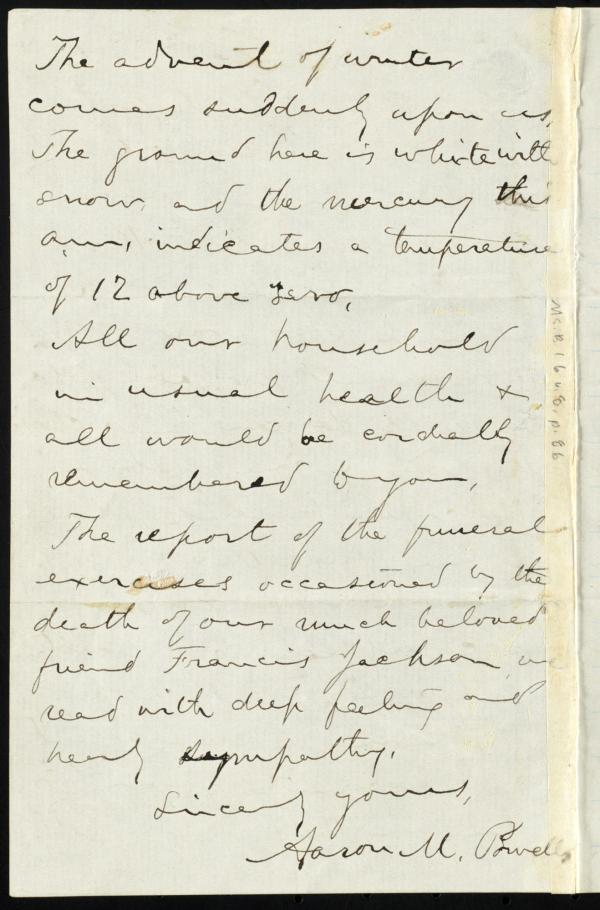 The advent of winter
comes suddenly upon us.
The ground here is white with
snow, and the mercury this
a.m. indicates a temperature
of 12 above zero.
All our household
in usual health &
all would be cordially
remembered to you.
The report of the funeral
exercises occasioned by the
death of our much beloved
friend Francis Jackson, we
read with deep feeling and
hearty sympathy.
Sincerely yours,
Aaron M. Powell
Ms.B.1.6 v.8, p.86